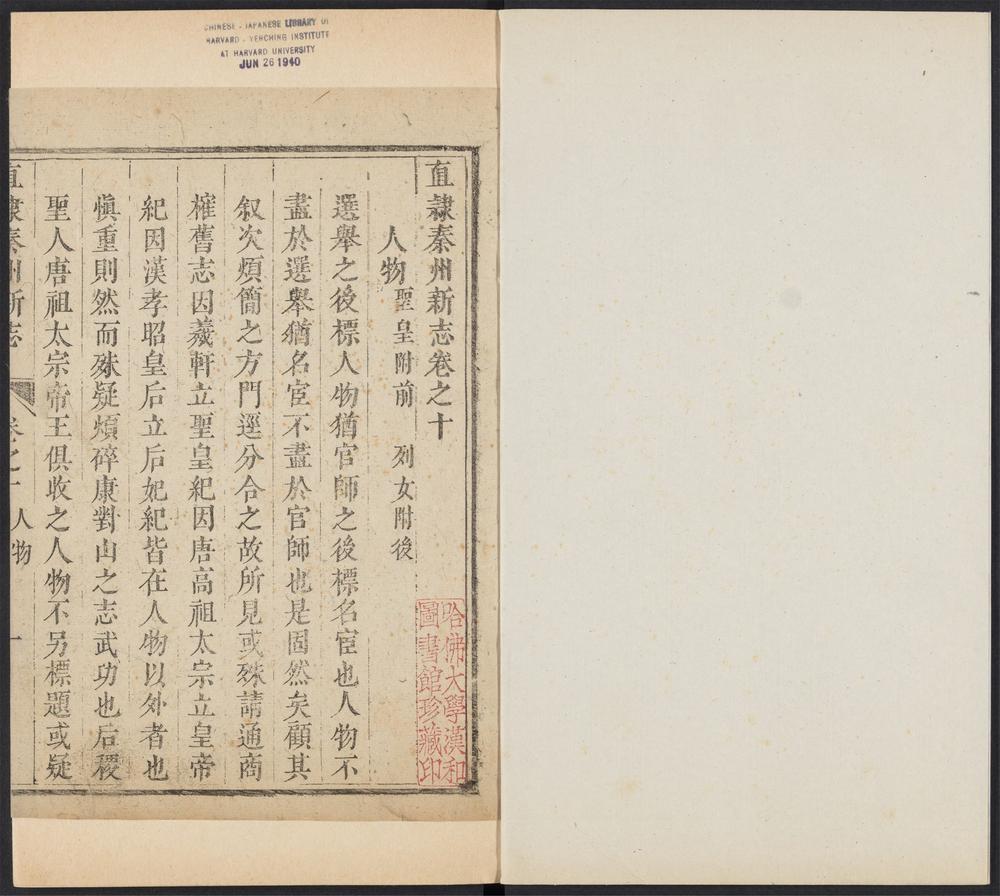 CHINESE - JAPANESE LIBRARY OF
HARVARD - YENCHING INSTITUTE
AT HARVARD UNIVERSITY
JUN 26 1940
直隷秦州新志卷之十
人物 聖皇附前 列女附後
選舉之後標人物猶官師之後標名宦也人物不
盡於選舉猶名宦不盡於官師也是固然矣顧其
叙次煩簡之方門逕分合之故所見或殊請通商
榷舊志因羲軒立聖皇紀因唐高祖太宗立皇帝
紀因漢孝昭皇后立后妃紀皆在人物以外者也
愼重則然而殊疑煩碎康對山之志武功也后稷
聖人唐祖太宗帝王俱收之人物不另標題或疑
直隷秦州新志 卷之十 人物 一
哈佛大學漢和
圖書館珍藏印